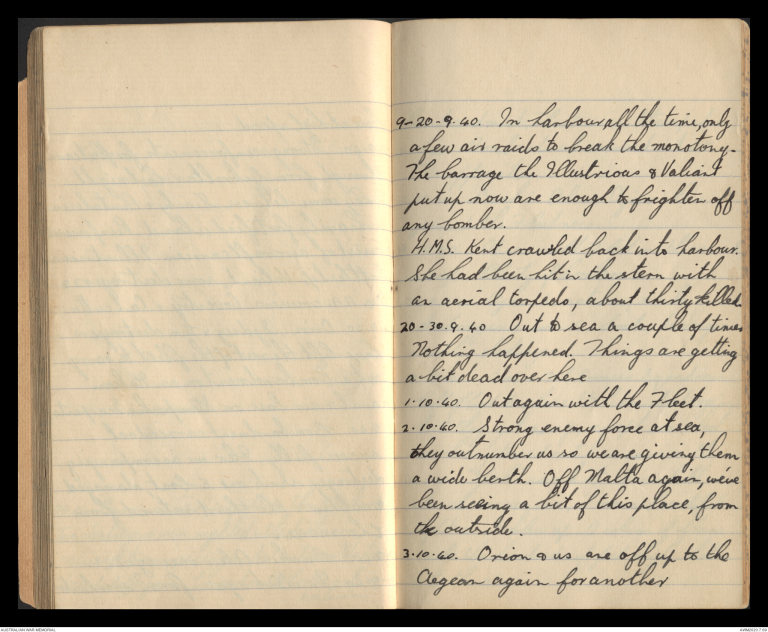 9-20-9.40. In harbour all the time, only
a few air raids to break the monotony.
The barrage the Illustrious & Valiant
put up now are enough to frighten off
any bomber.
H.M.S. Kent crawled back into harbour.
She had been hit in the stern with
an aerial torpedo, about thirty killed.
20-30.9.40 Out to sea a couple of times
Nothing happened. Things are getting
a bit dead over here
1.10.40. Out again with the Fleet.
2.10.40. Strong enemy force at sea,
they outnumber us so we are giving them
a wide berth. Off Malta again, we've
been seeing a bit of this place, from
the outside.
3.10.40. Orion & us are off up to the
Aegean again for another
AUSTRALIAN WAR MEMORIAL